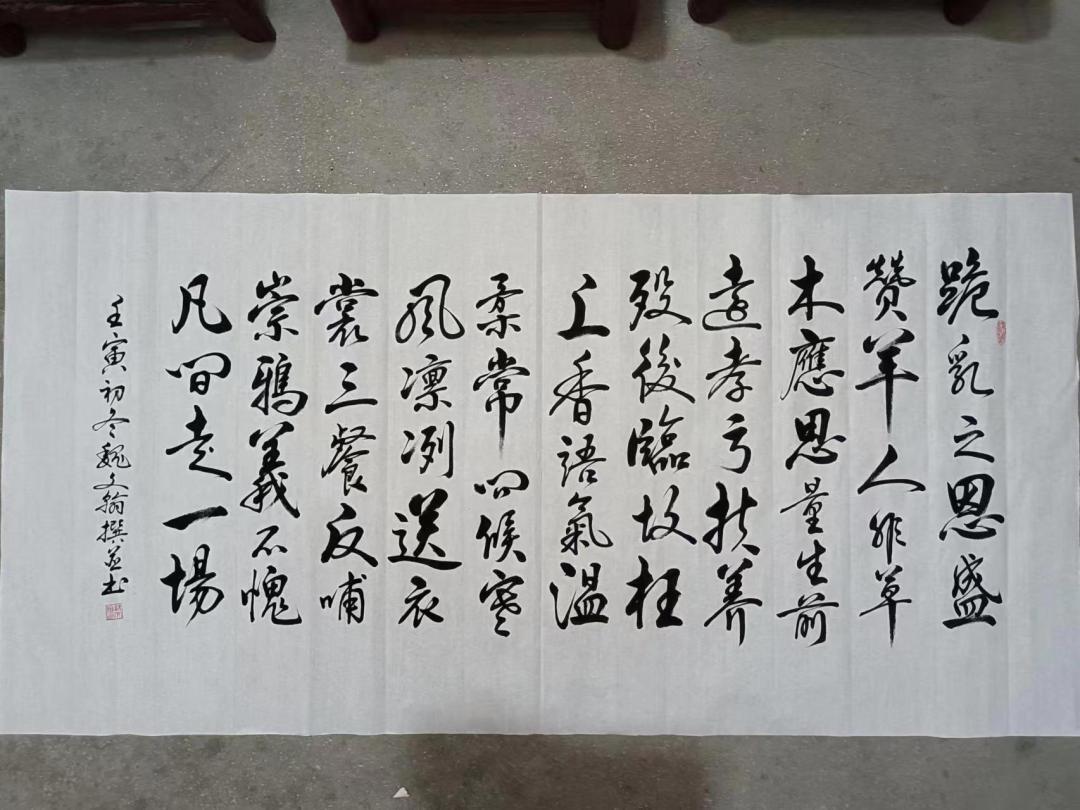 跪乳之恩盛
贊羊人非草
木應思量生前
違孝亏扶养
殁後臨故枉
上香語氣溫
柔常问候寒
風凛冽送衣
裳三餐反哺
崇鴉義不愧
凡間走一場
壬寅初冬魏文翰撰并书